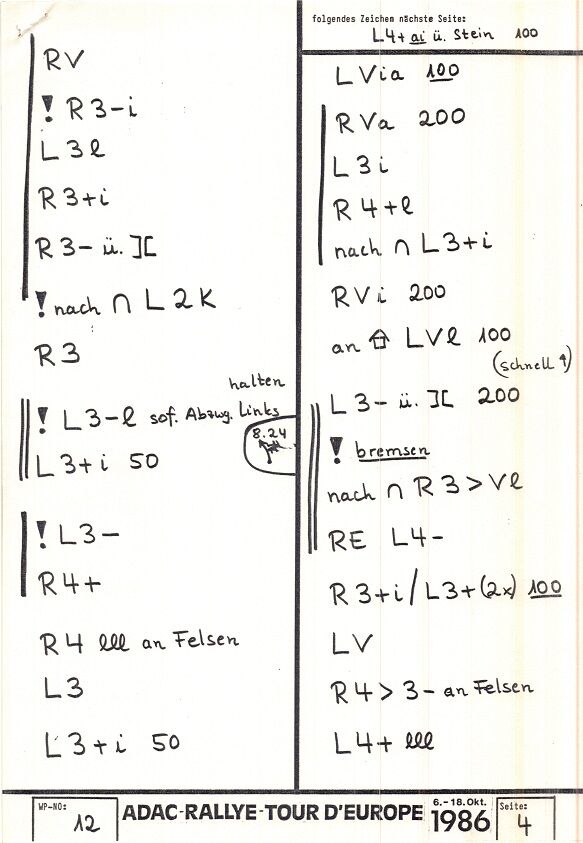 RV
! R3-i
L3l
R3+i
R3- ü. ][
! nach ∩ L2K
R3
halten
! L3-l sof. Abzwg. Links
8.24
L3+i 50
! L3-
R4+
R4 lll an Felsen
L3
L3+i 50
folgendes Zeichen nächste Seite:
L4+ ai ü. Stein 100
LVia 100
RVa 200
L3i
R4+l
nach ∩ L3+i
RVi 200
an ⇧ LVl 100
(schnell ↑)
L3- ü. ][ 200
! bremsen
nach ∩ R3>Vl
RE L4-
R3+i/L3+(2x) 100
LV
R4>3- an Felsen
L4+ lll
WP-NO: 12
ADAC-RALLYE-TOUR D'EUROPE
6.-18.Okt. 1986
Seite: 4